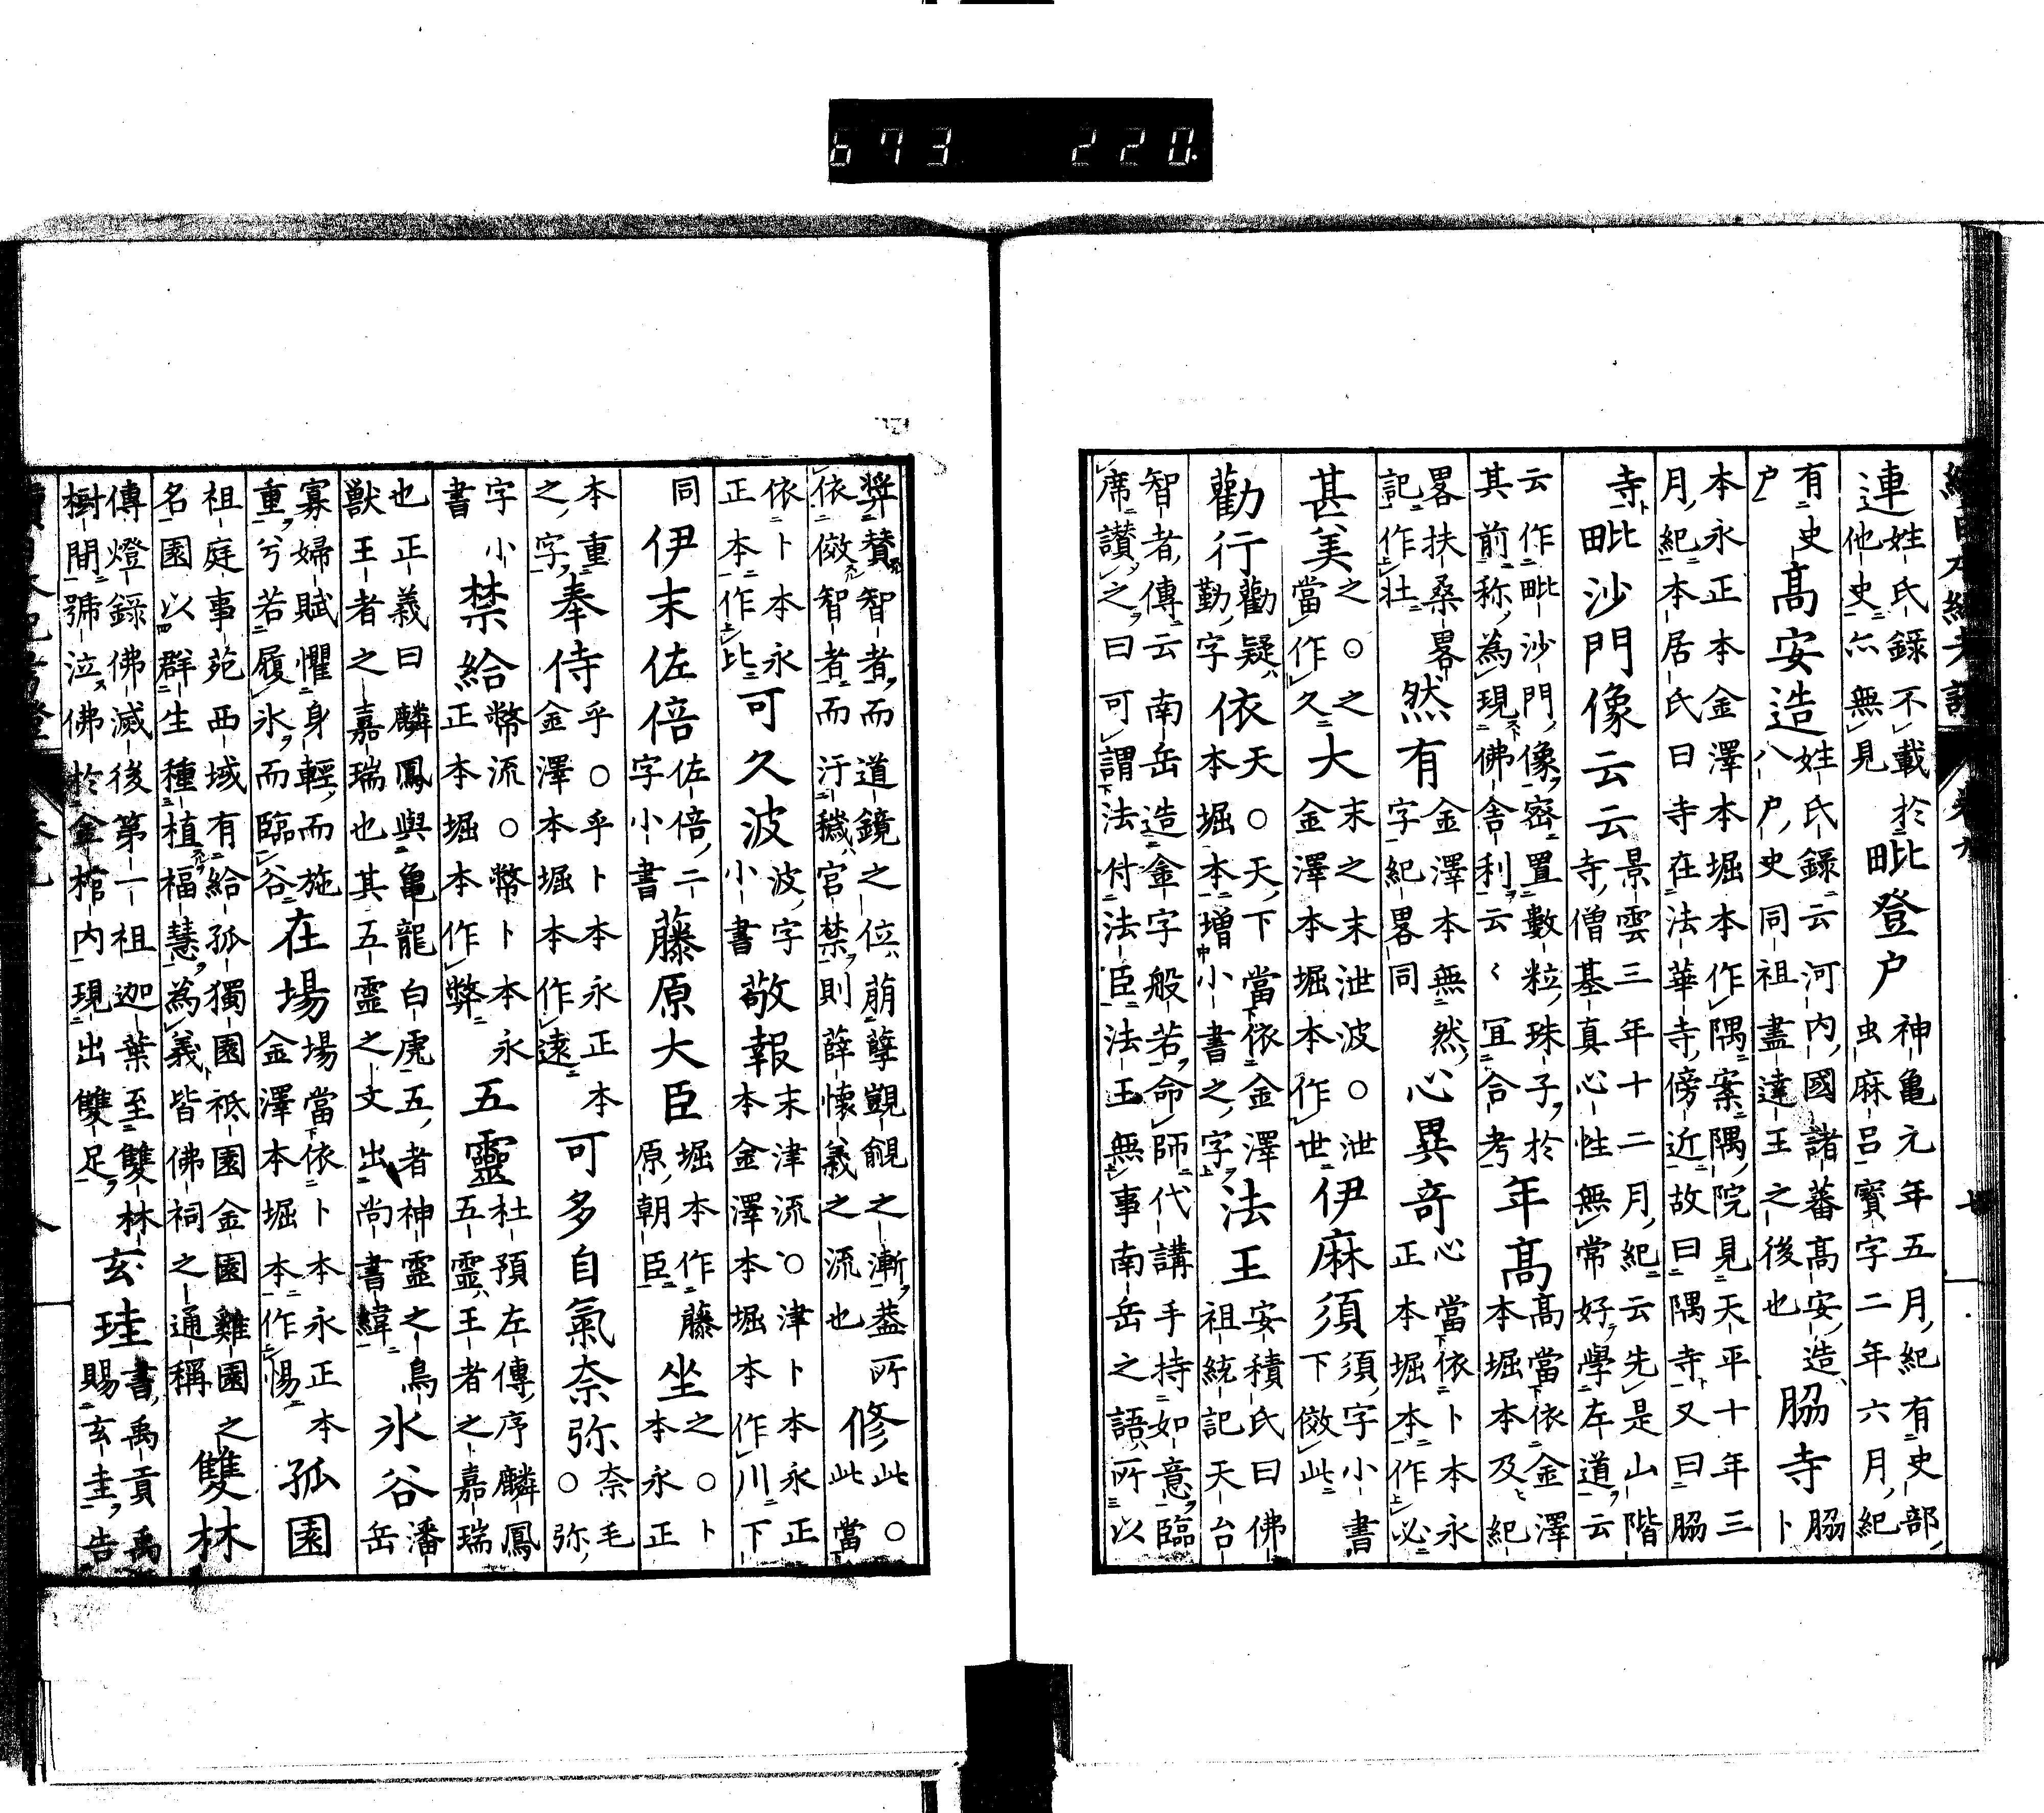 673 220.
連姓氏錄不載於他史亦無見毗登户神亀元年五月紀有史部虫麻呂寳字二年六月紀
有史户髙安造姓氏錄云河内國諸蕃髙安造八户史同祖盡達王之後也脇寺脇卜
本永正本金澤本堀本作隅案隅院見天平十年三月紀本居氏曰寺在法華寺傍近故曰隅寺又曰脇
寺毗沙門像云云景雲三年十二月紀云先是山階寺僧基真心性無常好學左道云
云作毗沙門像密置數粒珠子於其前称為現佛舎利云〻冝合考年髙髙當依金澤本堀本及紀
畧扶桑畧記作壮然有金澤本無然字紀畧同心異奇心當依卜本永正本堀本作必
甚美之〇之當作久大末之末泄波〇泄金澤本堀本作世伊麻須須字小書下傚此
勸行勸疑勤字依天〇天下當依金澤本堀本增小書之字法王安積氏曰佛祖統記天台
智者傳云南岳造金字般若命師代講手持如意臨席讃之曰可謂法付法臣法王無事南岳之語所以
奨賛智者而道鏡之位萠孽覬覦之漸葢所依傚智者而汙穢宮禁則薛懐義之流也修此〇當
依卜本永正本作比可久波波字小書敬報末津流〇津卜本永正本金澤本堀本作川下
同伊末佐倍佐倍二字小書藤原大臣堀本作藤原朝臣坐之〇卜本永正
本重之字奉侍乎〇乎卜本永正本金澤本堀本本作遠可多自氣奈弥奈毛〇弥
字小書禁給幣流〇幣卜本永正本堀本作弊五靈杜預左傳序麟鳳五靈王者之嘉瑞
也正義曰麟鳳與亀龍白虎五者神靈之鳥獣王者之嘉瑞也其五靈之文出尚書緯氷谷潘岳
寡婦賦懼身輕而施重兮若履氷而臨谷在場場當依卜本永正本金澤本堀本作惕孤園
祖庭事苑西域有給孤獨園祗園金園雞園之名園以群生種植福慧為義皆佛祠之通稱雙林
傳燈錄佛滅後第一祖迦葉至雙林樹間號泣佛於金棺内現出雙足玄珪書禹貢禹賜玄圭告